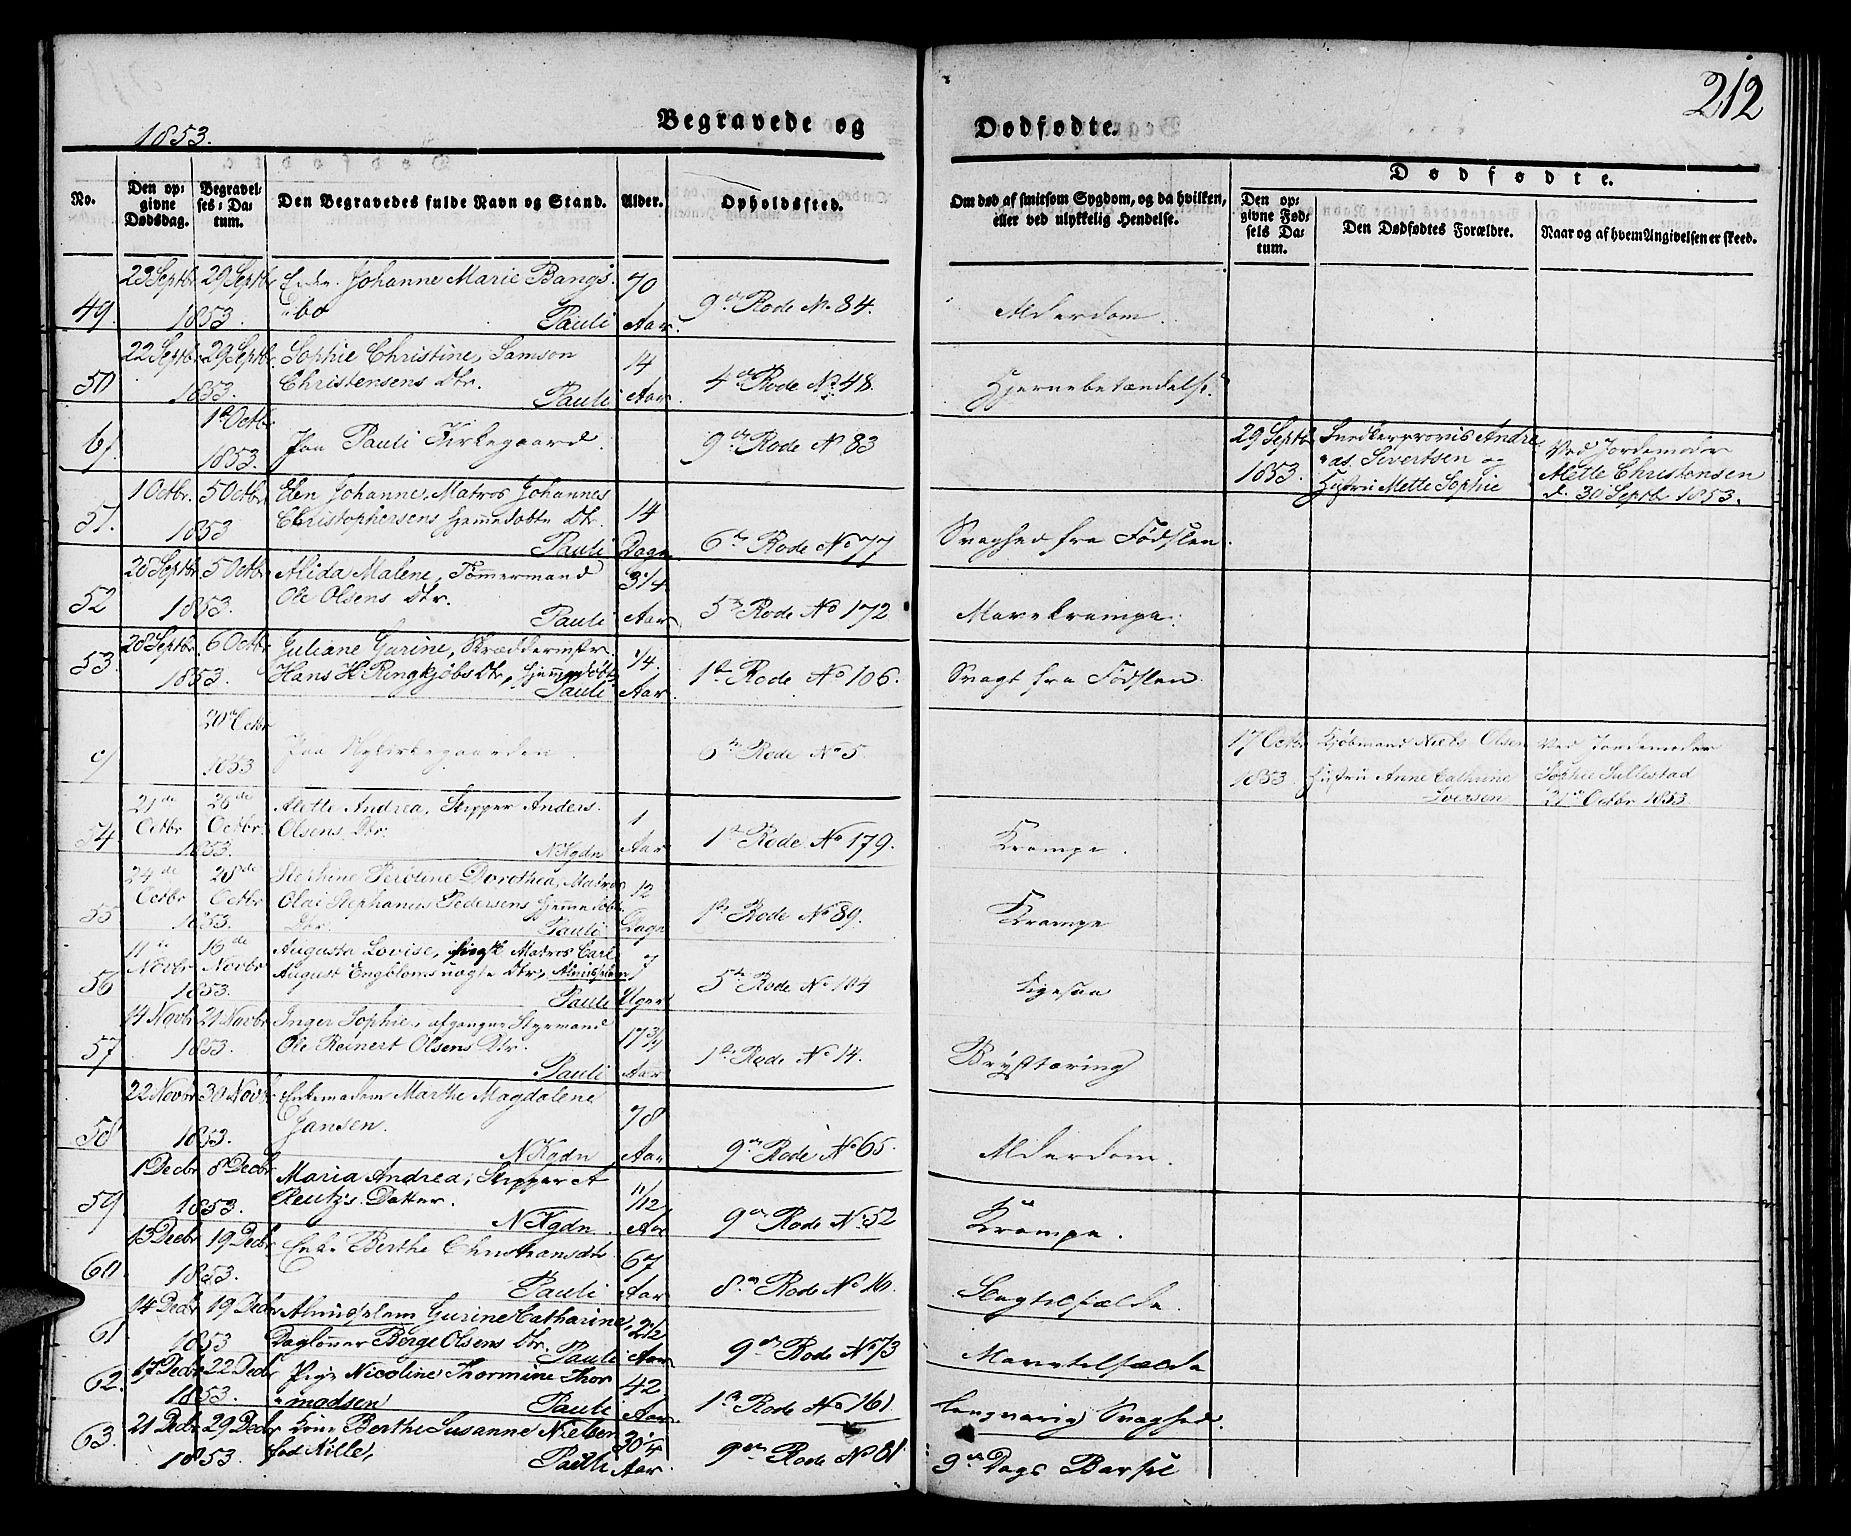 212
1853.
Begravede og Dødfødte.
No.
Den opgivne Dødsdag.
Begravelses-Datum.
Den Begravedes fulde Navn og Stand.
Alder.
Opholdssted.
Om død af smitsom Sygdom, og da hvilken, eller ved ulykkelig Hendelse.
Dødfødte.
Den opgivne Fødsels Datum.
Den Dødfødtes Forældre.
Naar og af hvem Angivelsen er skeed.
49. 23 Septbr 29 Septbr 1853. Enke. Johanne Marie Bangs-
bo Pauli 70 Aar. 9de Rode No 84. Alderdom.
50 22 Septbr 29 Septbr 1853. Sophie Christine, Samson
Christensens Dtr. Pauli 14 Aar. 4de Rode No 48. Hjernebetændelse.
b, 1ste Octbr 1853. Paa Pauli Kirkegaard. 9de Rode No 83
29 Septbr 1853. Snedkerprovis Andre-
as Sivertsen og
Hustru Mette Sophie
Ved Jordemoder
Mette Christensen
d. 30 Septbr 1853.
51. 1 Octbr. 5 Octbr. 1853 Elen Johanne, Matros Johannes
Christophersens hjemmedøbte Dtr. Pauli 14 Dage 6te Rode No 77 Svaghed fra Fødslen.
52 28 Septbr 5 Octbr. 1853. Alida Malene, Tømmermand
Ole Olsens Dtr. Pauli 3 1/4 Aar 5te Rode No 172 Mavekrampe.
53. 28 Septbr. 6 Octbr 1853. Juliane Gurine, Skræddermstr.
Hans H Ringkjøbs Dtr, hjemmedøbt Pauli 1/4 Aar. 1ste Rode No 106. Svagt fra Fødslen.
c, 20de Octbr 1853 Paa Nykirkegaarden 6te Rode No 5
17 Octbr 1853. Kjøbmand Niels Olsen
Hustru Anne Cathrine
Iversen
Ved Jordemoder
Sophie Sullestad
21de Octbr 1853.
54 21de Octbr 26de Octbr. 1853. Mette Andrea, Skipper Anders
Olsens Dtr. N Kgdn 1 Aar 1ste Rode No 179. Krampe.
55 24de Octbr 28de Octbr 1853. Stephine Peroline Dorothea, Matros
Olai Stephanus Pedersens hjemmedøbte
Dtr. Pauli 12 Dage 1ste Rode No 89. Krampe
56 11te Novbr 16de Novbr 1853. Augusta Lovise, Matros Carl
August Engbloms uægte Dtr, Almisselem Pauli 7 Uger 5te Rode No 104 Ligesaa
57 14 Novbr 21 Novbr 1853. Inger Sophie, afgangne Styrmand
Ole Reinert Olsens Dtr. Pauli 17 3/4 Aar 1ste Rode No 14. Brysttæring
58 22 Novbr 30 Novbr 1853. Enkemadam Marthe Magdalene
Jansen. N Kgdn 78 Aar 9de Rode No 65. Alderdom.
59 1 Decbr 8 Decbr 1853. Maria Andrea, Skipper A
Reutz's Datter. N Kgdn. 11/12 Aar 9de Rode No 52 Krampe.
60. 13 Decbr 19 Decbr 1853. Enke Berthe Christiansdtr Pauli 67 Aar 8de Rode No 16. Slagtilfælde.
61 14 Decbr 19 Decbr 1853 Almisselem Gurine Catharine,
Daglønner Børge Olsens Dtr. Pauli 2 1/2 Aar 9de Rode No 73 Mavetilfælde
62. 17 Decbr 22 Decbr 1853. Pige Nicoline Thormine Thor-
modsen Pauli 42 Aar. 1ste Rode No 161 Langvarig Svaghed.
63. 21 Decbr 29 Decbr 1853. Kone Berthe Susanne Nielsen
fød Aille, Pauli 30 1/4 Aar. 9de Rode No 81 9de Dags Barsel